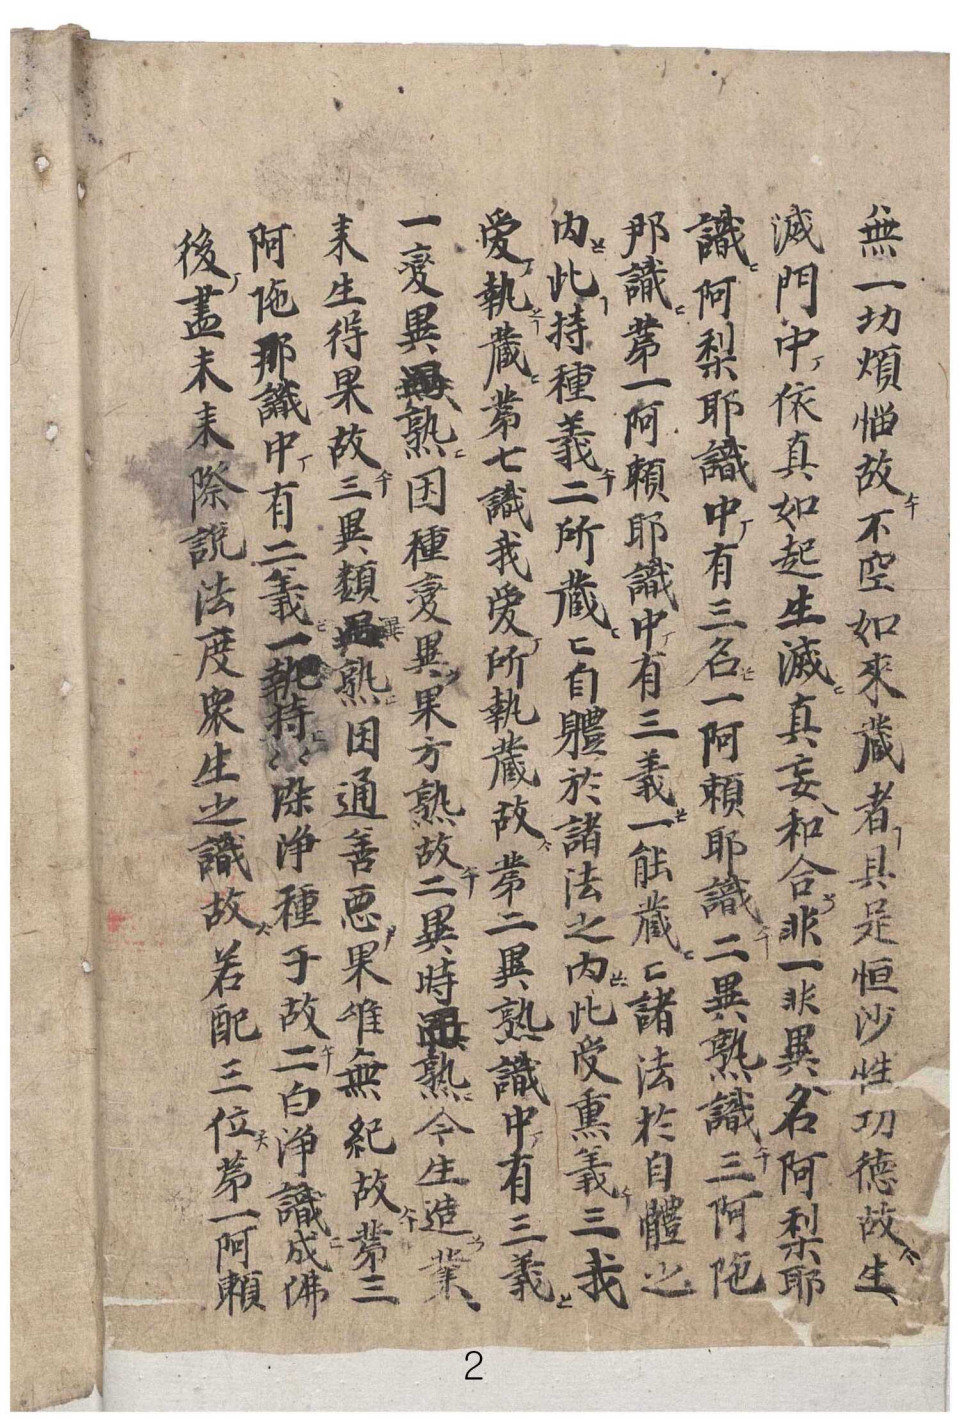 無一切煩惱故不空如來藏者具足恒沙性功德故生
滅門中依真如起生滅真妄和合非一非異名阿梨耶
識阿梨耶識中有三名一阿賴耶識二異熟識三阿陁
那識第一阿賴耶識中有三義一能藏諸法於自體之
內此持種義二所藏自體於諸法之內此受熏義三我
愛執藏第七識我愛所執藏故第二異熟識中有三義
一変異熟因種変異果方熟故二異時熟今生造業
未生得果故三異類異熟因通善惡果唯無紀故第三
阿陁那識中有二義一執持染淨種子故二白淨識成佛
後盡未來際說法度衆生之識故若配三位第一阿賴
2